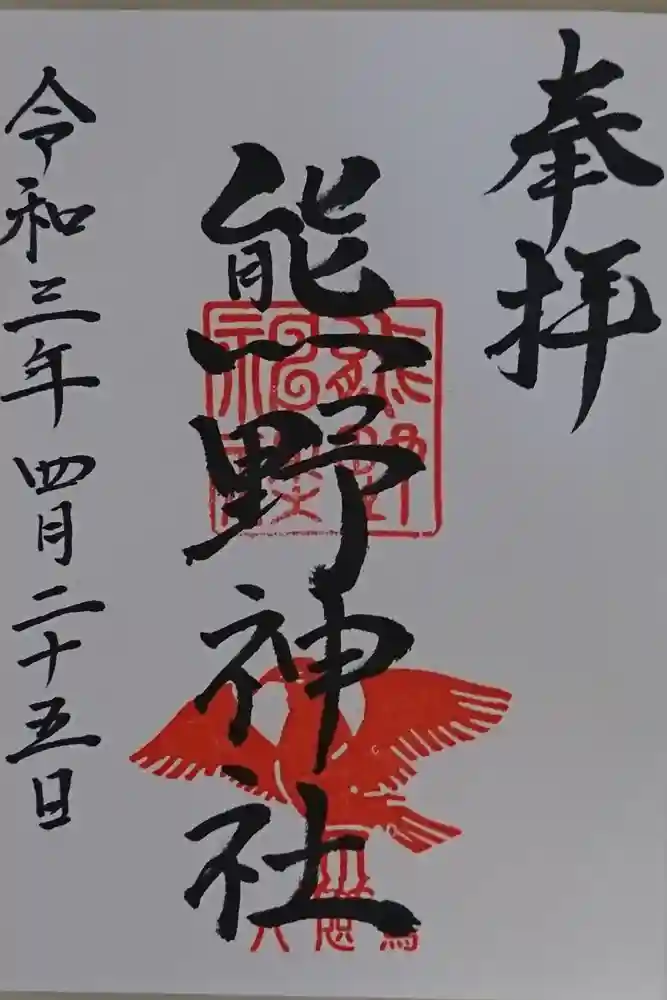 奉拝
熊野神社
令和三年四月二十五日
八咫烏